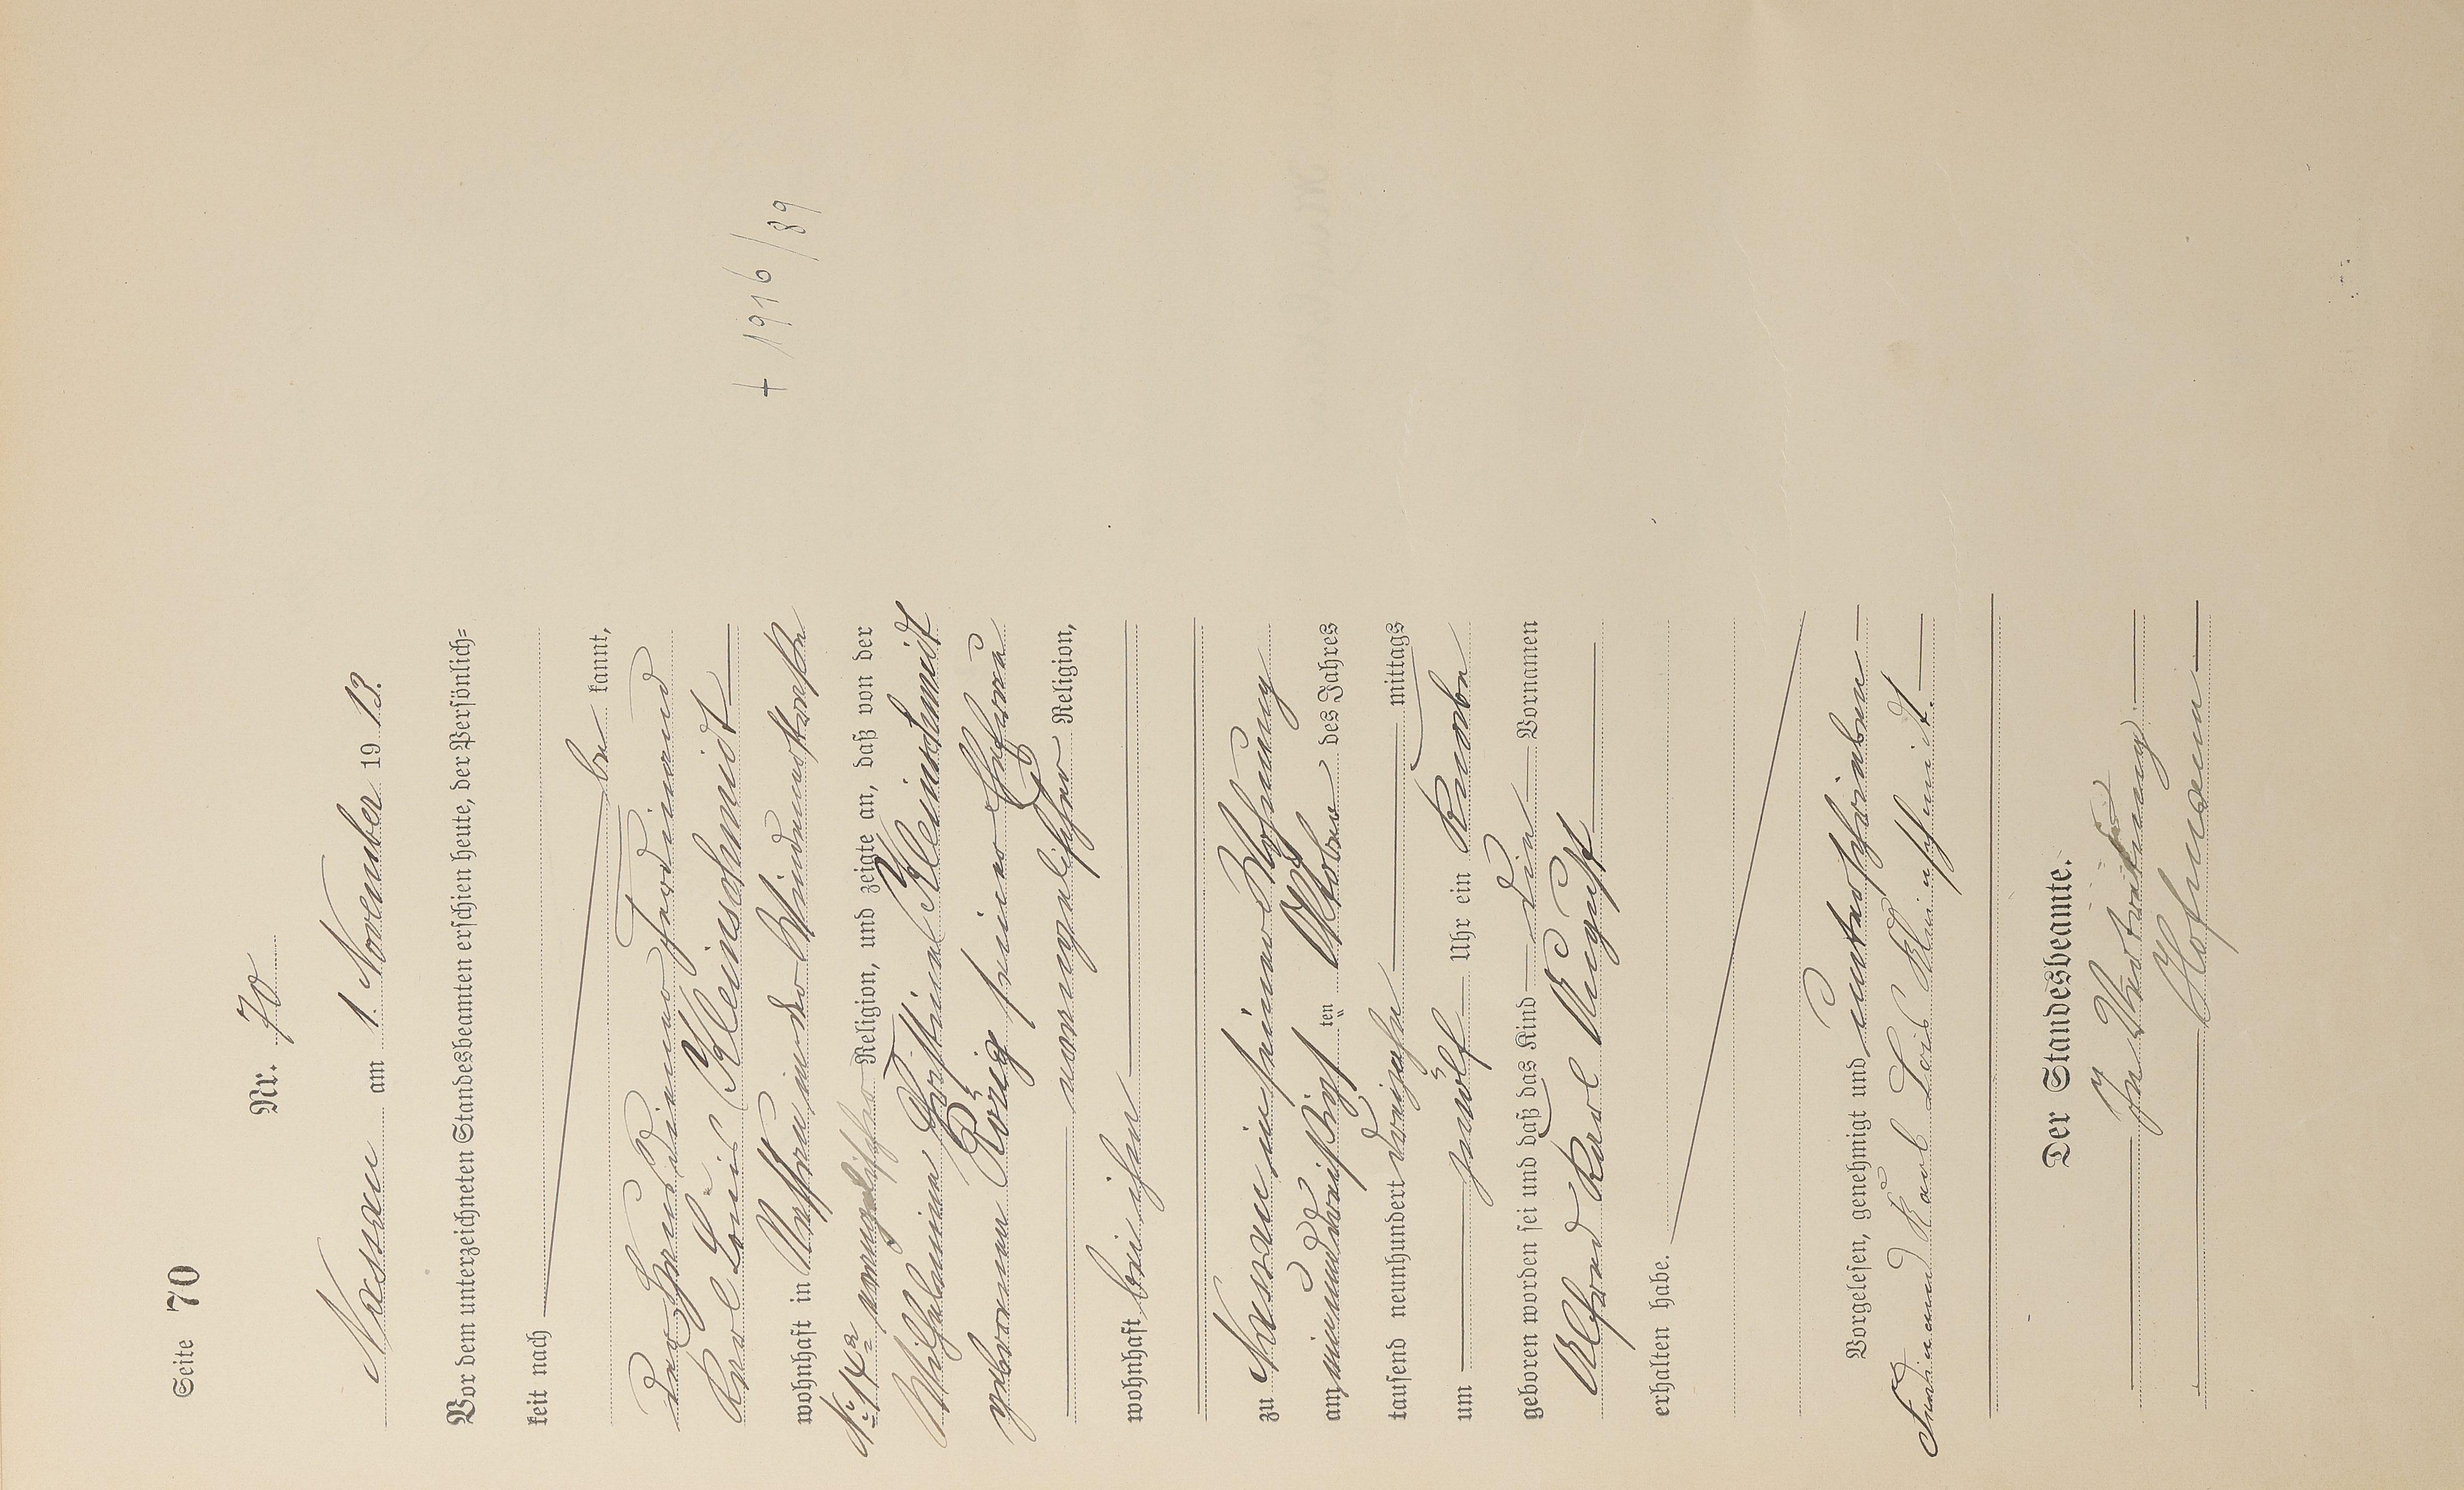 Seite 70
Nr. 70
Nassau am 1. November 1913.
Vor dem unterzeichneten Standesbeamten erschien heute, der Persönlich=
keit nach be kannt,
der Ferdinand
Karl Louis Kleinschmidt
wohnhaft in Nassau in der Windmühlstraße
No. 14a evangelischer Religion, und zeigte an, daß von der
Wilhelmine Christine Kleinschmidt
geborenen König seiner Ehefrau
evangelischer Religion,
wohnhaft bei ihm
zu Nassau in seiner Wohnung
am einunddreißigsten Oktober des Jahres
tausend neunhundert dreizehn mittags
um zwölf Uhr ein Knabe
geboren worden sei und daß das Kind die Vornamen
Alfred Karl August
erhalten habe.
Vorgelesen, genehmigt und unterschrieben
Ferdinand Karl Louis Kleinschmidt.
Der Standesbeamte.
In Vertretung.
Hofmann
+ 1916/89